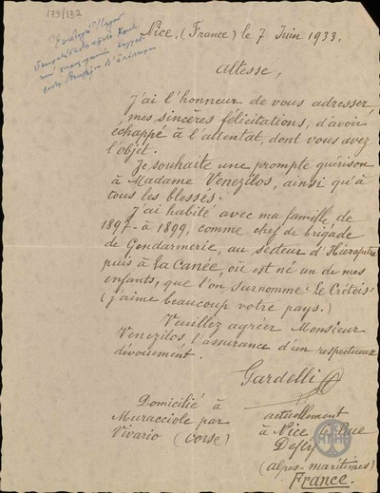 173/132
Nice, (France) le 7 Juin 1933.
Altesse,
J'ai l'honneur de vous adresser,
mes sincères félicitations, d'avoir
échappé à l'attentat, dont vous avez
l'objet.
Je souhaite une prompte guérison
à Madame Venezilos, ainsi qu'à
tous les blessés.
J'ai habité avec ma famille de
1897 à 1899, comme chef de brigade
de Gendarmerie, au secteur d'Hierapetra
puis à La Canée, où est né un de mes
enfants, que l'on surnomme "Le Crétois"
(j'aime beaucoup votre pays.)
Veuillez agréer Monsieur
Venezilos l'assurance d'un respectueux
dévouement.
Gardelli
Domicilié à
Muracciole par
Vivario (Corse)
actuellement
à Nice Rue
Defly
(Alpes-maritimes)
France.